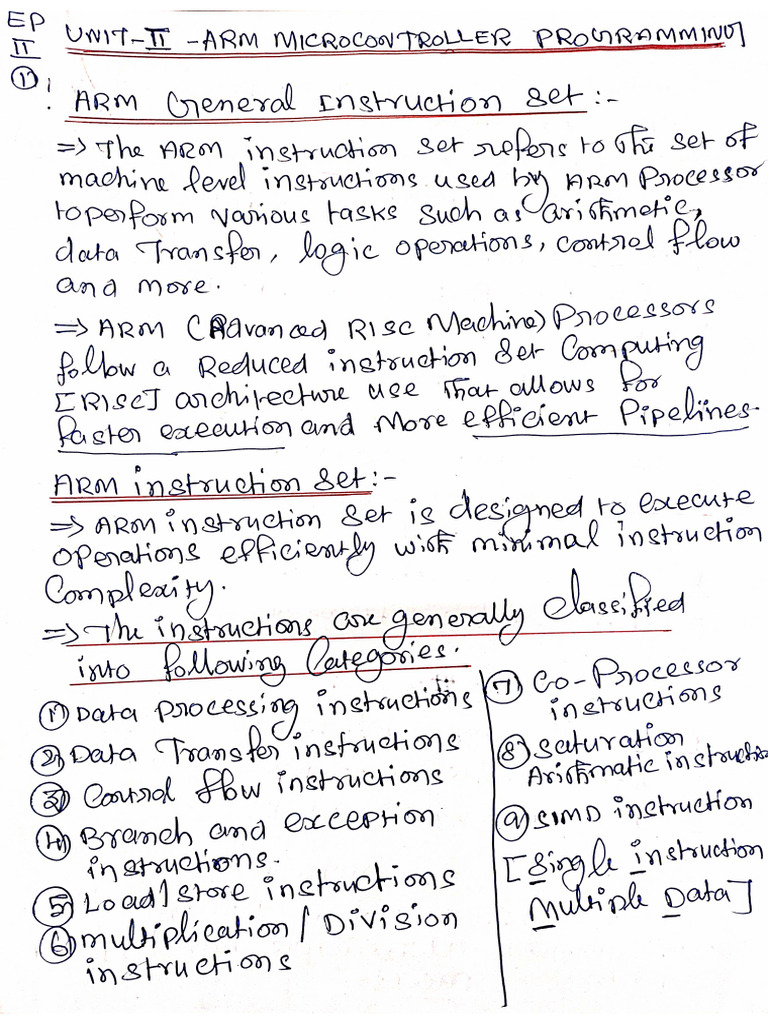 EP
II
①
UNIT-II - ARM MICROCONTROLLER PROGRAMMING
ARM General Instruction set :-
=> The ARM instruction set refers to the set of
machine level instructions used by ARM Processor
to perform various tasks such as arithmetic,
data Transfer, logic operations, control flow
and more.
=> ARM (Advanced RISC Machine) Processors
follow a Reduced instruction Set Computing
[RISC] architecture use that allows for
faster execution and more efficient Pipelines.
ARM instruction Set :-
=> ARM instruction Set is designed to execute
operations efficiently with minimal instruction
Complexity.
=> The instructions are generally classified
into following Categories.
① Data processing instructions
② Data Transfer instructions
③ Control flow instructions
④ Branch and exception
instructions.
⑤ Load/store instructions
⑥ multiplication / Division
instructions
⑦ Co-Processor
instructions
⑧ Saturation
Arithmatic instruction
⑨ SIMD instruction
[Single instruction
Multiple Data]